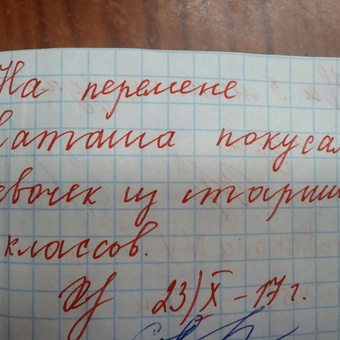 На перемене
аташа покусал
евочек из старши
классов.
23/X - 17 г.